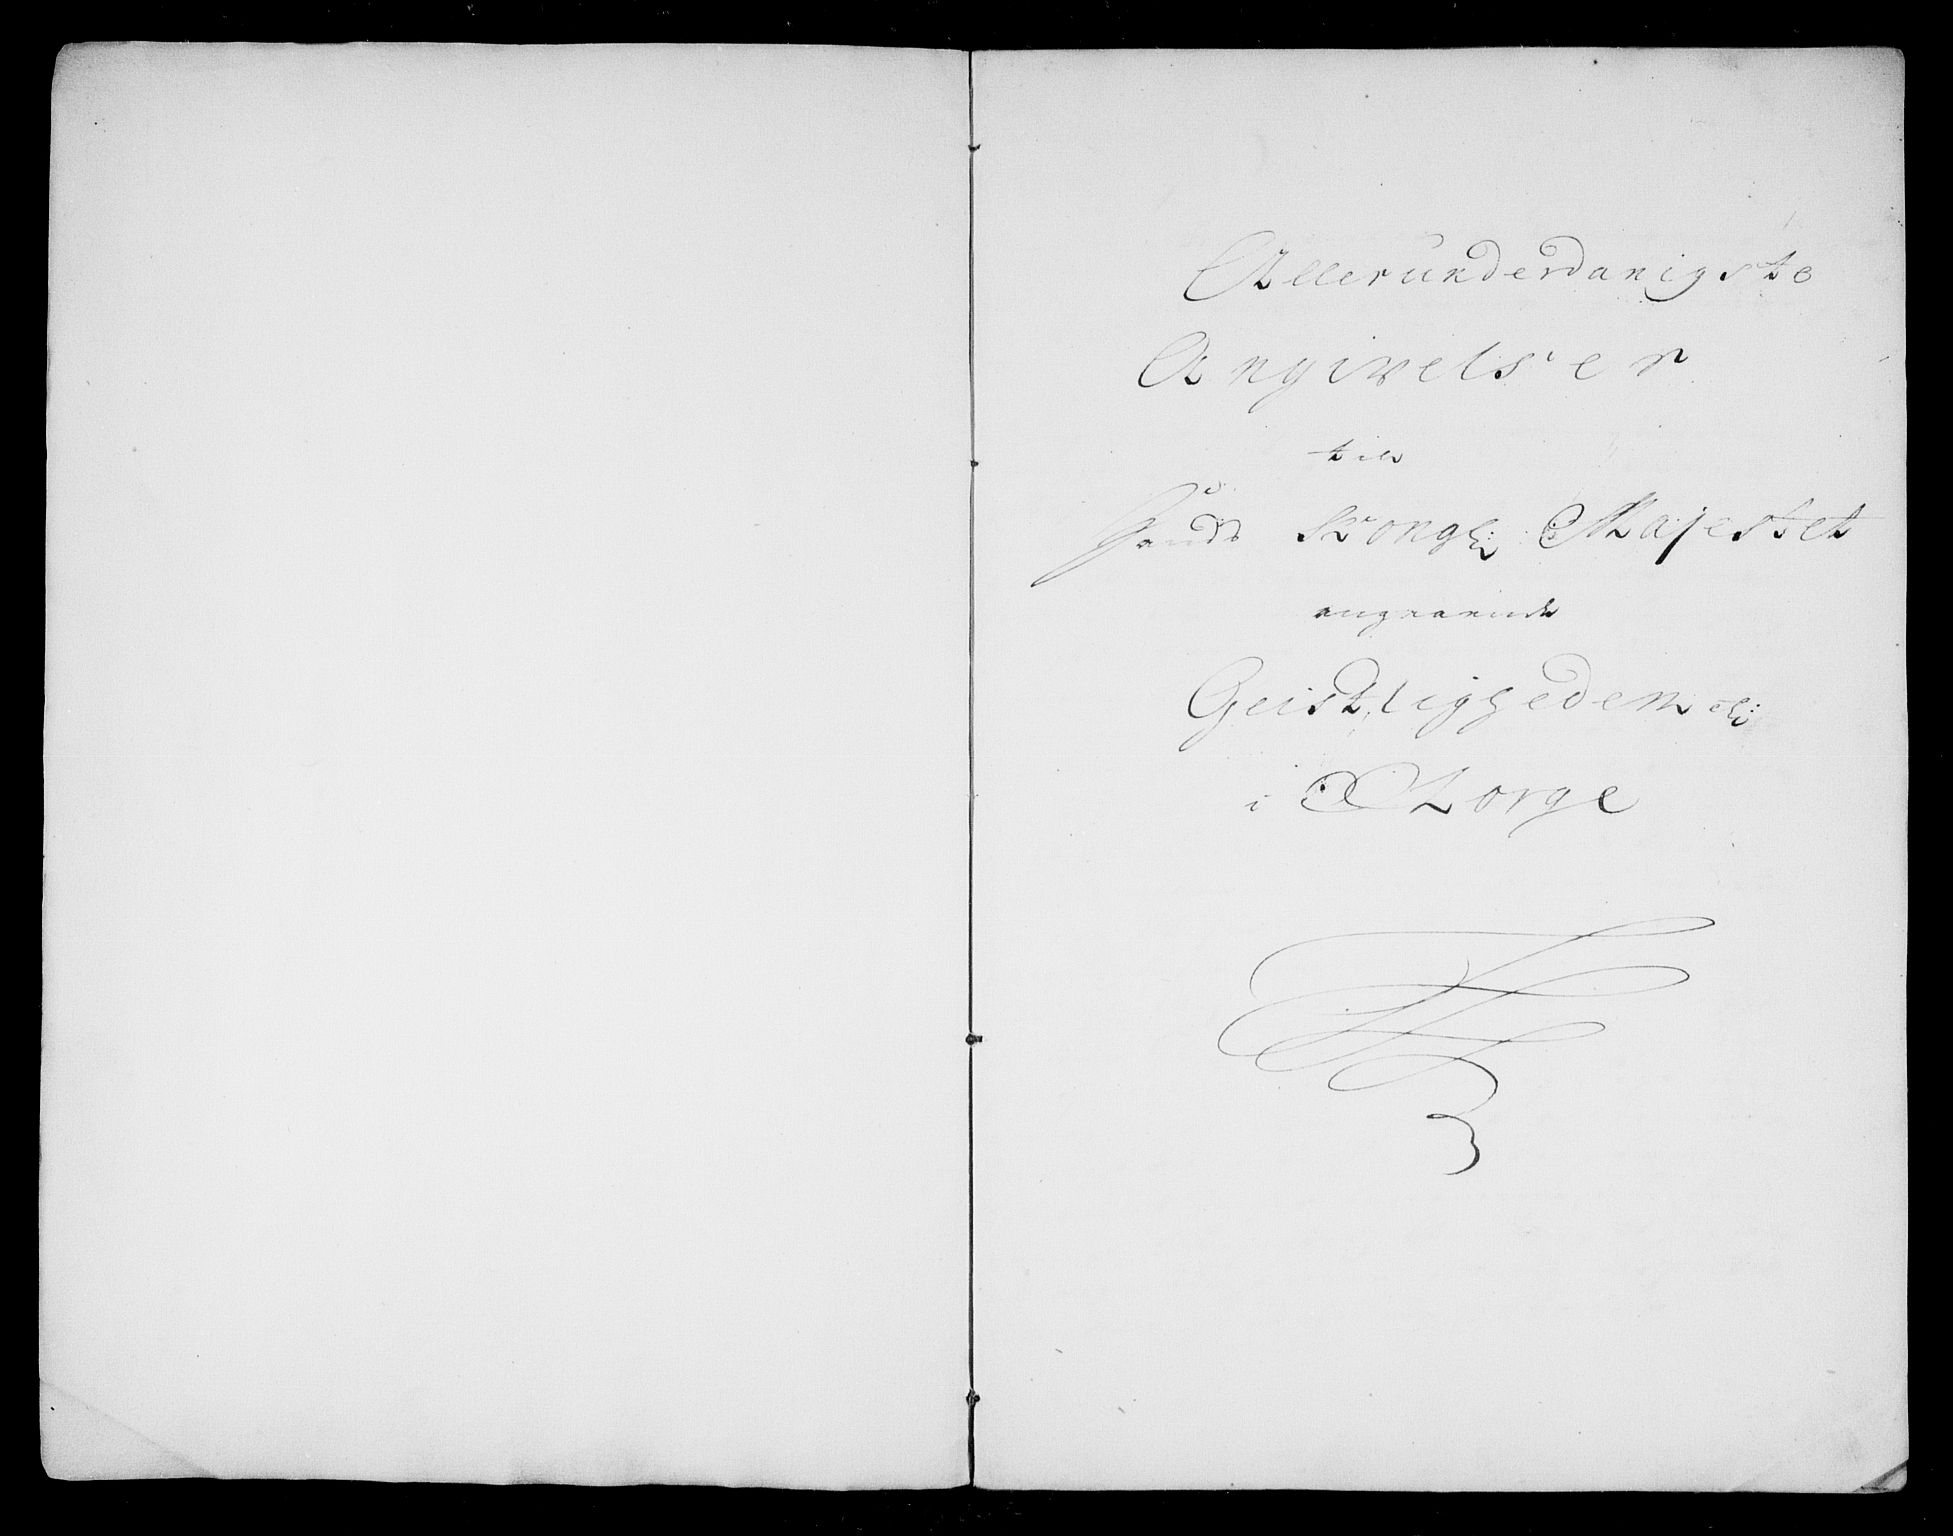 Allerunderdanigste
Angivelser
til
Hands Kongl: Majestet
angaaende
Geistligheden &c:
i Norge